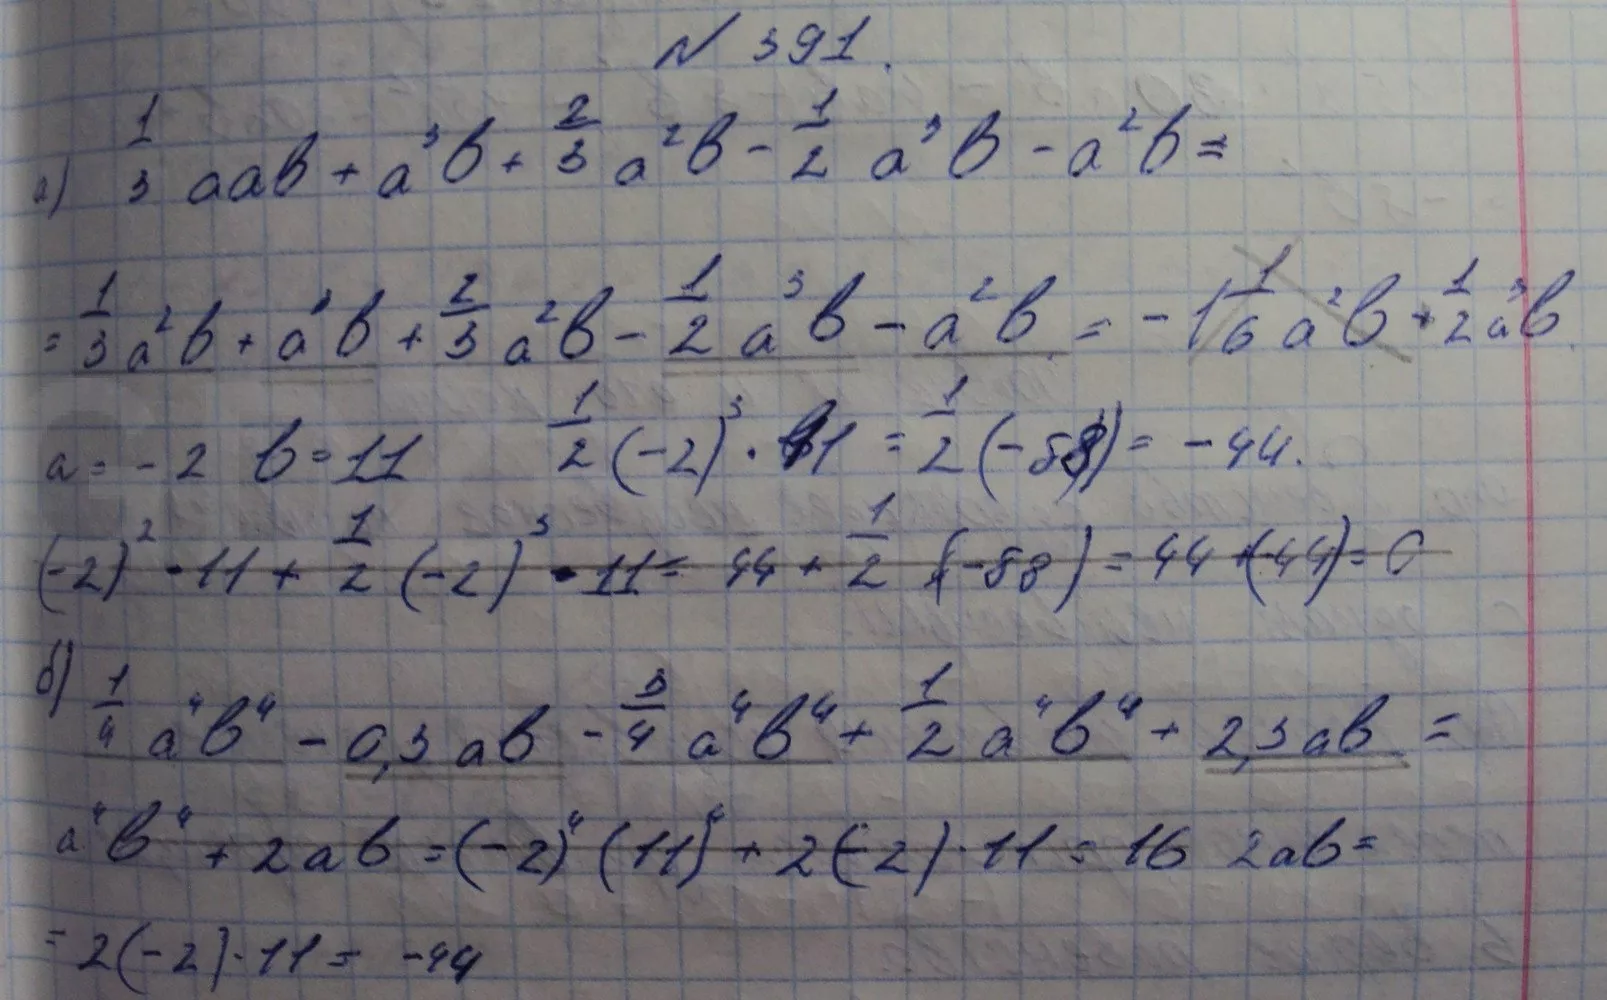 N 391.
а) 1/3 aab + a³b + 2/3 a²b - 1/2 a³b - a²b =
= 1/3 a²b + a³b + 2/3 a²b - 1/2 a³b - a²b = - 1 1/6 a²b + 1/2 a³b.
a = - 2 b = 11 1/2 (-2)³ · 11 = 1/2 (-88) = - 44.
(-2)² · 11 + 1/2 (-2)³ · 11 = 44 + 1/2 (-88) = 44 + (-44) = 0
б) 1/4 a⁴b⁴ - 0,3 ab - 3/4 a⁴b⁴ + 1/2 a⁴b⁴ + 2,3 ab =
a⁴b⁴ + 2ab = (-2)⁴ (11)⁴ + 2(-2) · 11 = 16 2ab =
= 2(-2) · 11 = -44